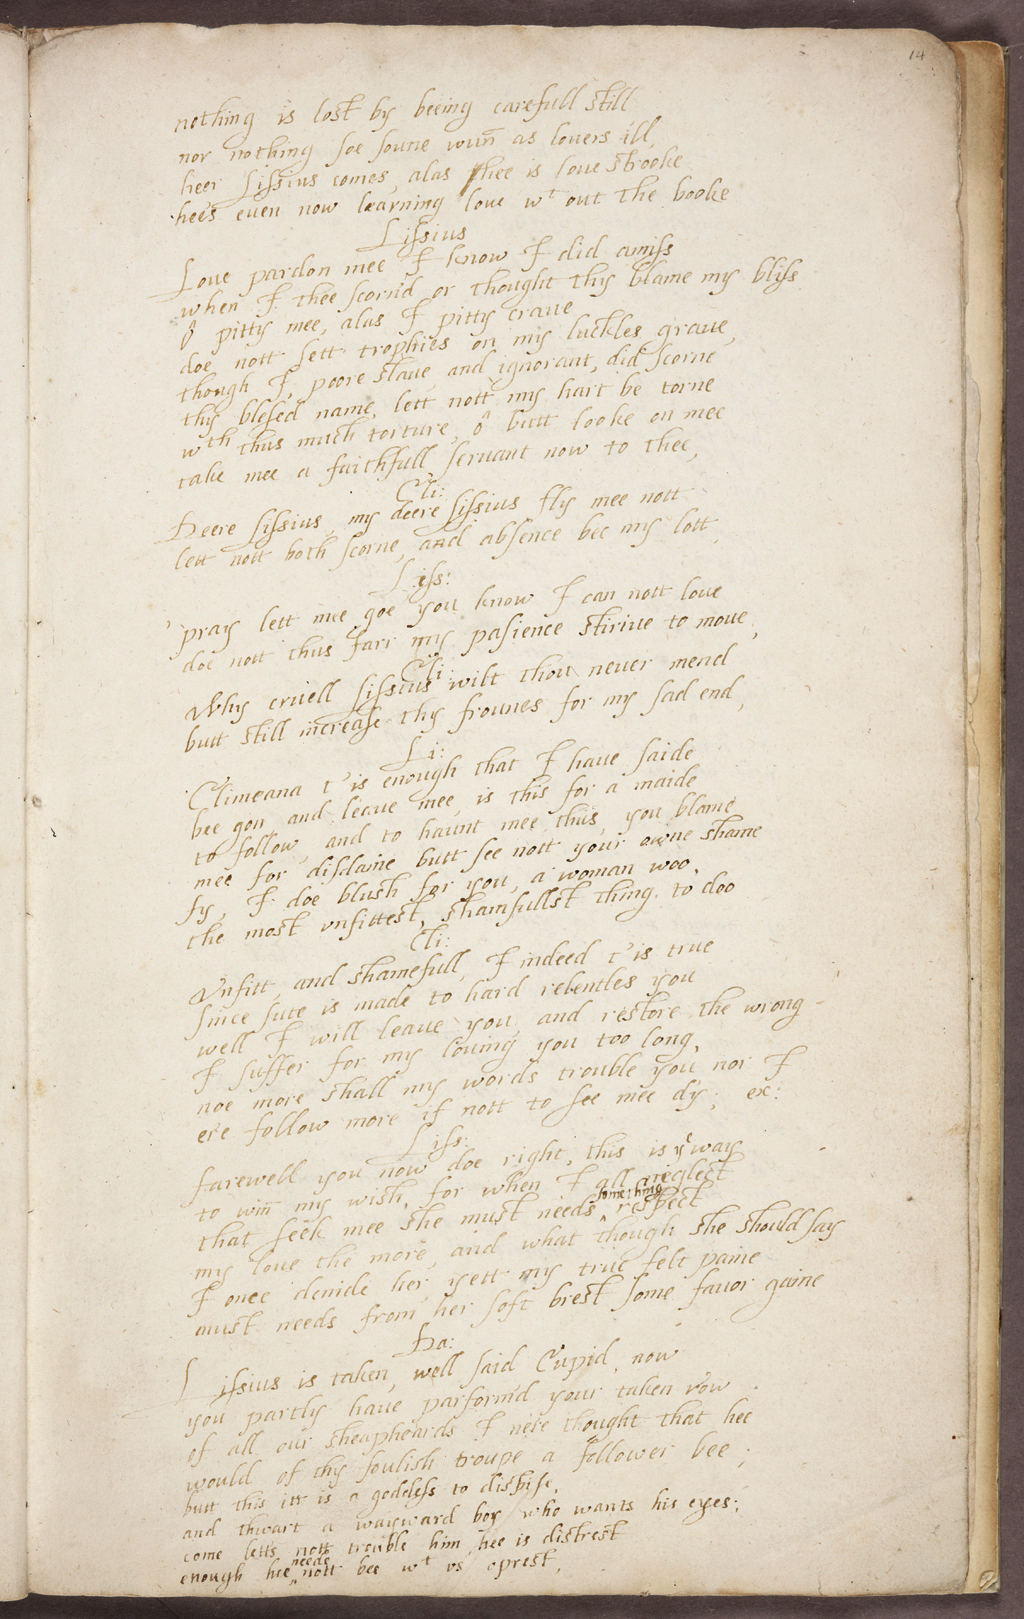 14
nothing is lost by beeing carefull still
nor nothing soe soune wun̄ as louers ill,
heer Lissius comes, alas hee is loue strooke
hee's euen now learning loue wt out the booke
Lissius
Loue pardon mee I know I did amiss
when I thee scorn'd or thought thy blame my bliss
ô pitty mee, alas I pitty craue
doe nott sett trophies on my luckles graue,
though I, poore slaue and ignorant, did scorne
thy blessed name, lett nott my hart be torne
wth thus much torture, ô butt looke on mee
take mee a faithfull seruant now to thee,
Cli:
Deere Lissius, my deere Lissius fly mee nott
lett nott both scorne, and absence bee my lott,
Liss:
pray lett mee goe you know I can nott loue
doe nott thus farr my pasience striue to moue,
Cli:
Why cruell Lissius wilt thou neuer mend
butt still increase thy frounes for my sad end,
Li:
Climeana t'is enough that I haue saide
bee gon, and leaue mee, is this for a maide
to follow, and to haunt mee thus, you blame
mee for disdaine butt see nott your owne shame
fy, I doe blush for you, a woman woo,
the most vnfittest, shamfullst thing to doo
Cli:
Vnfitt and shamefull, I indeed t'is true
since sute is made to hard relentles you
well I will leaue you, and restore the wrong
I suffer for my louing you too long,
noe more shall my words trouble you, nor I
ere follow more if nott to see mee dy; ex:
Liss:
farewell you now doe right, this is ye way
to win̄ my wish, for when I all neglect
that seek mee she must needs something respect
my loue the more, and what though she should say
I once denide her, yett my true felt paine
must needs from her soft brest some fauor gaine
Da:
Lissius is taken, well said Cupid, now
you partly haue parform'd your taken vow
of all our sheapheards I nere thought that hee
would of thy foulish troupe a follower bee;
butt this itt is a goddess to dispise,
and thwart a wayward boy who wants his eyes;
come letts nott trouble him, hee is distrest
enough hee needs nott bee wt vs oprest,